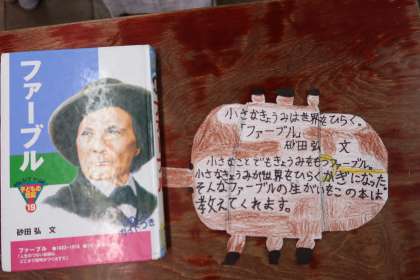 ファーブル
子どもの
伝記
19
砂田弘 文
ファーブル
小さなきょうみは世界をひらく。
「ファーブル」
砂田弘 文
小さなことでもきょうみをもつファーブル。
小さなきょうみが世界をひらくかぎになった。
そんなファーブルの生がいをこの本は
教えてくれます。